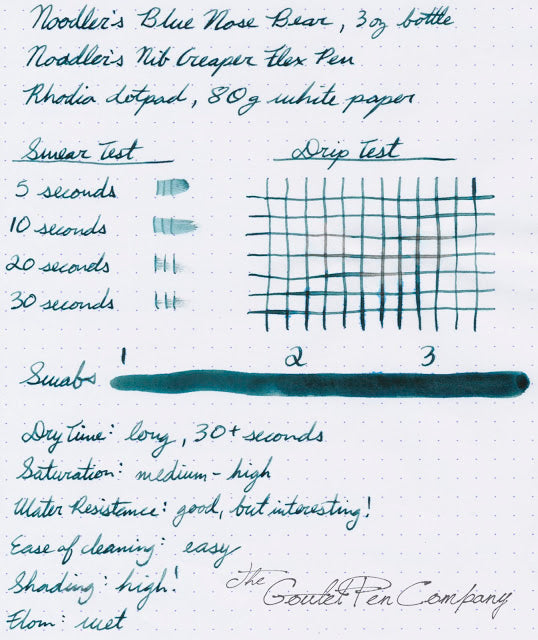 Noodler's Blue Nose Bear, 3oz bottle
Noodler's Nib Creaper Flex Pen
Rhodia dotpad, 80g white paper
Smear Test
Drip Test
5 seconds
10 seconds
20 seconds
30 seconds
1 2 3
Swabs
Dry Time: long, 30+ seconds
Saturation: medium-high
Water Resistance: good, but interesting!
Ease of cleaning: easy
Shading: high!
The Goulet Pen Company
Flow: wet